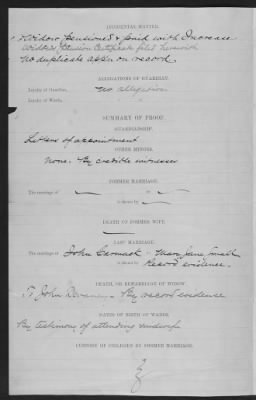 INCIDENTAL MATTER.
Widow, Pensioned & paid with Increase
Widow's Pension Certificate filed herewith
No duplicate appl'n on record
ALLEGATIONS OF GUARDIAN.
Loyalty of Guardian, No allegation
Loyalty of Wards, " "
SUMMARY OF PROOF
GUARDIANSHIP.
Letters of appointment
OTHER MINORS.
None. By credible witnesses
FORMER MARRIAGE.
The marriage of — to —
is shown by —
DEATH OF FORMER WIFE.
—
LAST MARRIAGE.
The marriage of John to Mary Jane Smith
is shown by Record evidence.
DEATH, OR REMARRIAGE OF WIDOW
To John - By record evidence
DATES OF BIRTH OF WARDS.
By testimony of attending midwife
CUSTODY OF CHILDREN BY FORMER MARRIAGE.